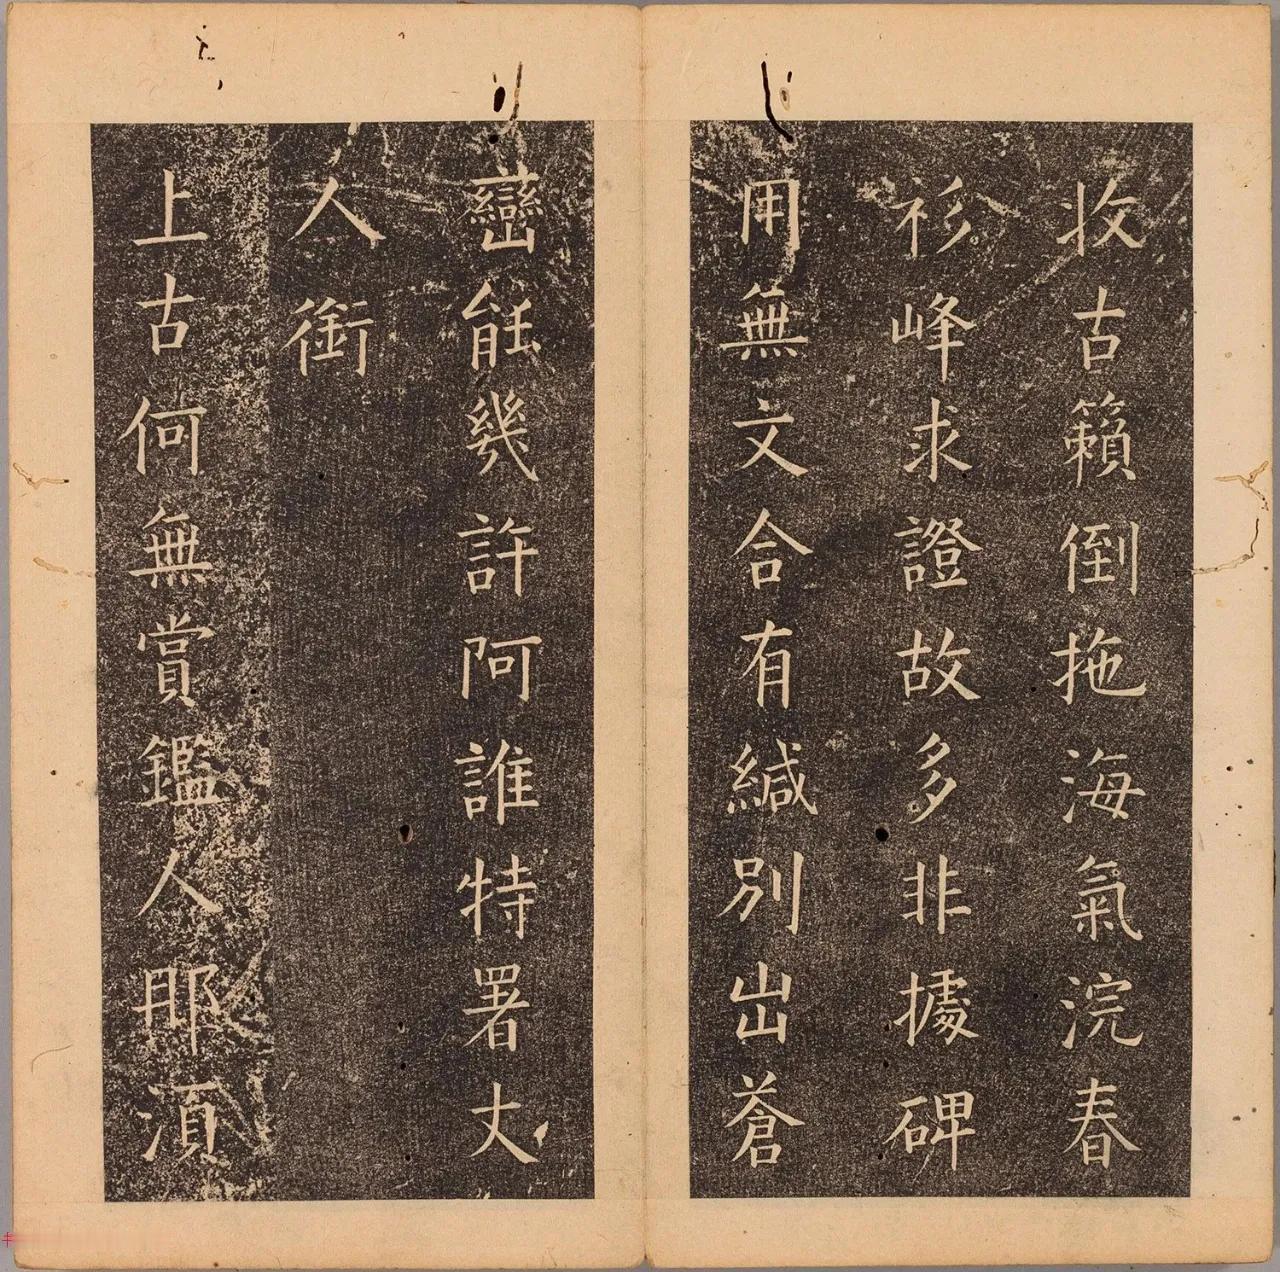 收古籟倒拖海氣浣春
衫峰求證故多非據碑
用無文合有緘別出蒼
巒能幾許阿誰特署丈
人銜
上古何無賞鑑人耶湏